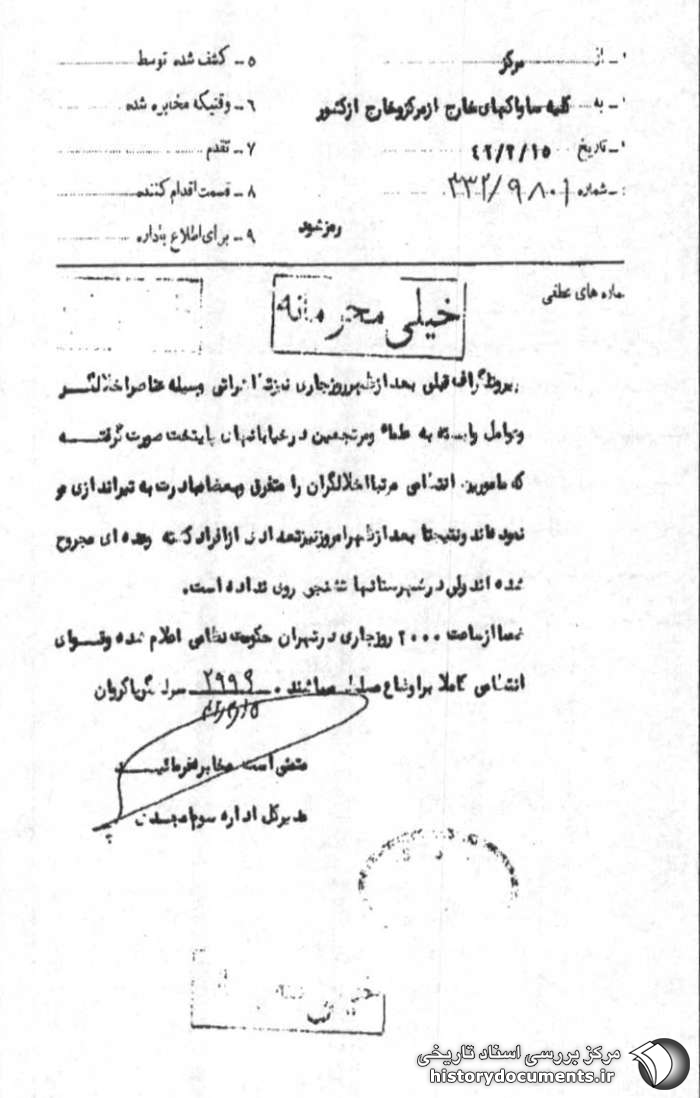 ۱ - از مرکز
۵ - کشف شده توسط
۲ - به کلیه ساواکهای خارج از مرکز و خارج از کشور
۶ - وقتیکه مخابره شده
۳ - تاریخ ۴۲/۳/۱۵
۷ - تقدم
۴ - شماره ۳۳۲/۹۸۰۱
۸ - قسمت اقدام کننده
رمز شود
۹ - برای اطلاع باداره
شماره های عطفی
خیلی محرمانه
پیرو تلگراف قبلی بعد از ظهر روز جاری نیز تظاهراتی وسیله عناصر اخلالگر
و عوامل وابسته به علماء و مرتجعین در خیابانهای پایتخت صورت گرفته
که مامورین انتظامی مرتبا اخلالگران را متفرق و بعضا مبادرت به تیراندازی
نموده اند و نتیجتا بعد از ظهر امروز نیز تعدادی از افراد کشته و عده ای مجروح
شده اند ولی در شهرستانها تشنجی روی نداده است.
ضمنا از ساعت ۲۰۰۰ روز جاری در تهران حکومت نظامی اعلام شده و قوای
انتظامی کاملا بر اوضاع مسلط میباشند. ۲۹۹۹ سرلشگر پاکروان
۴۲/۳/۱۵
متمنی است مخابره فرمائید
مدیر کل اداره سوم
خیلی محرمانه
مرکز بررسی اسناد تاریخی
historydocuments.ir